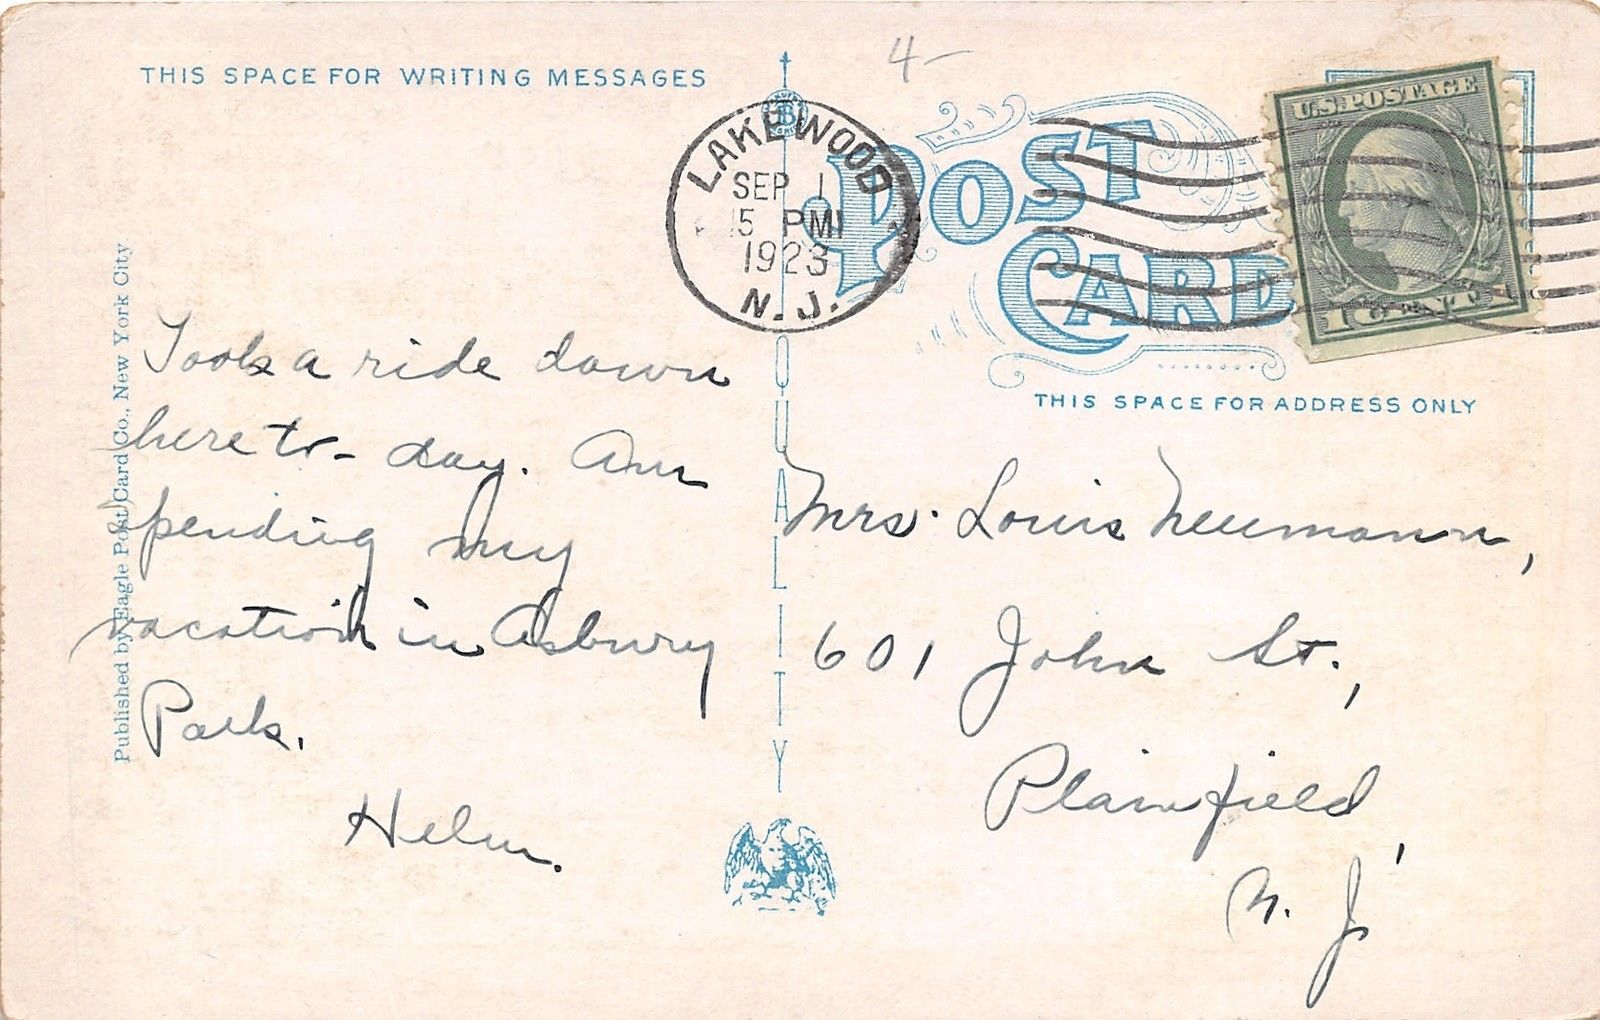 4-
THIS SPACE FOR WRITING MESSAGES
LAKEWOOD
SEP 1
15 PM
1923
N.J.
POST
CARD
U.S. POSTAGE
THIS SPACE FOR ADDRESS ONLY
Published by Eagle Post Card Co., New York City
QUALITY
Took a ride down
here to-day. Am
spending my
vacation in Asbury
Park.
Helen.
Mrs. Louis Neumann,
601 John St.,
Plainfield,
N. J.